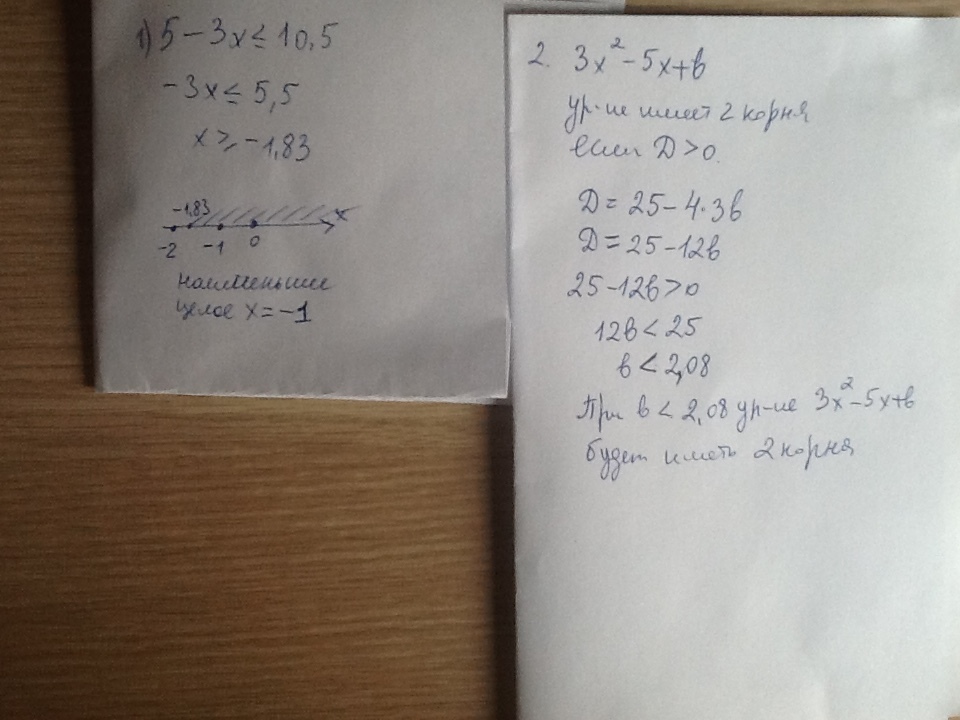 1) 5 - 3x ≤ 10,5
-3x ≤ 5,5
x ≥ -1,83
-1,83 x
-2 -1 0
наименьшее
целое x = -1
2. 3x² - 5x + в
ур-ие имеет 2 корня
если D > 0.
D = 25 - 4·3в
D = 25 - 12в
25 - 12в > 0
12в < 25
в < 2,08
При в < 2,08 ур-ие 3x² - 5x + в
будет иметь 2 корня